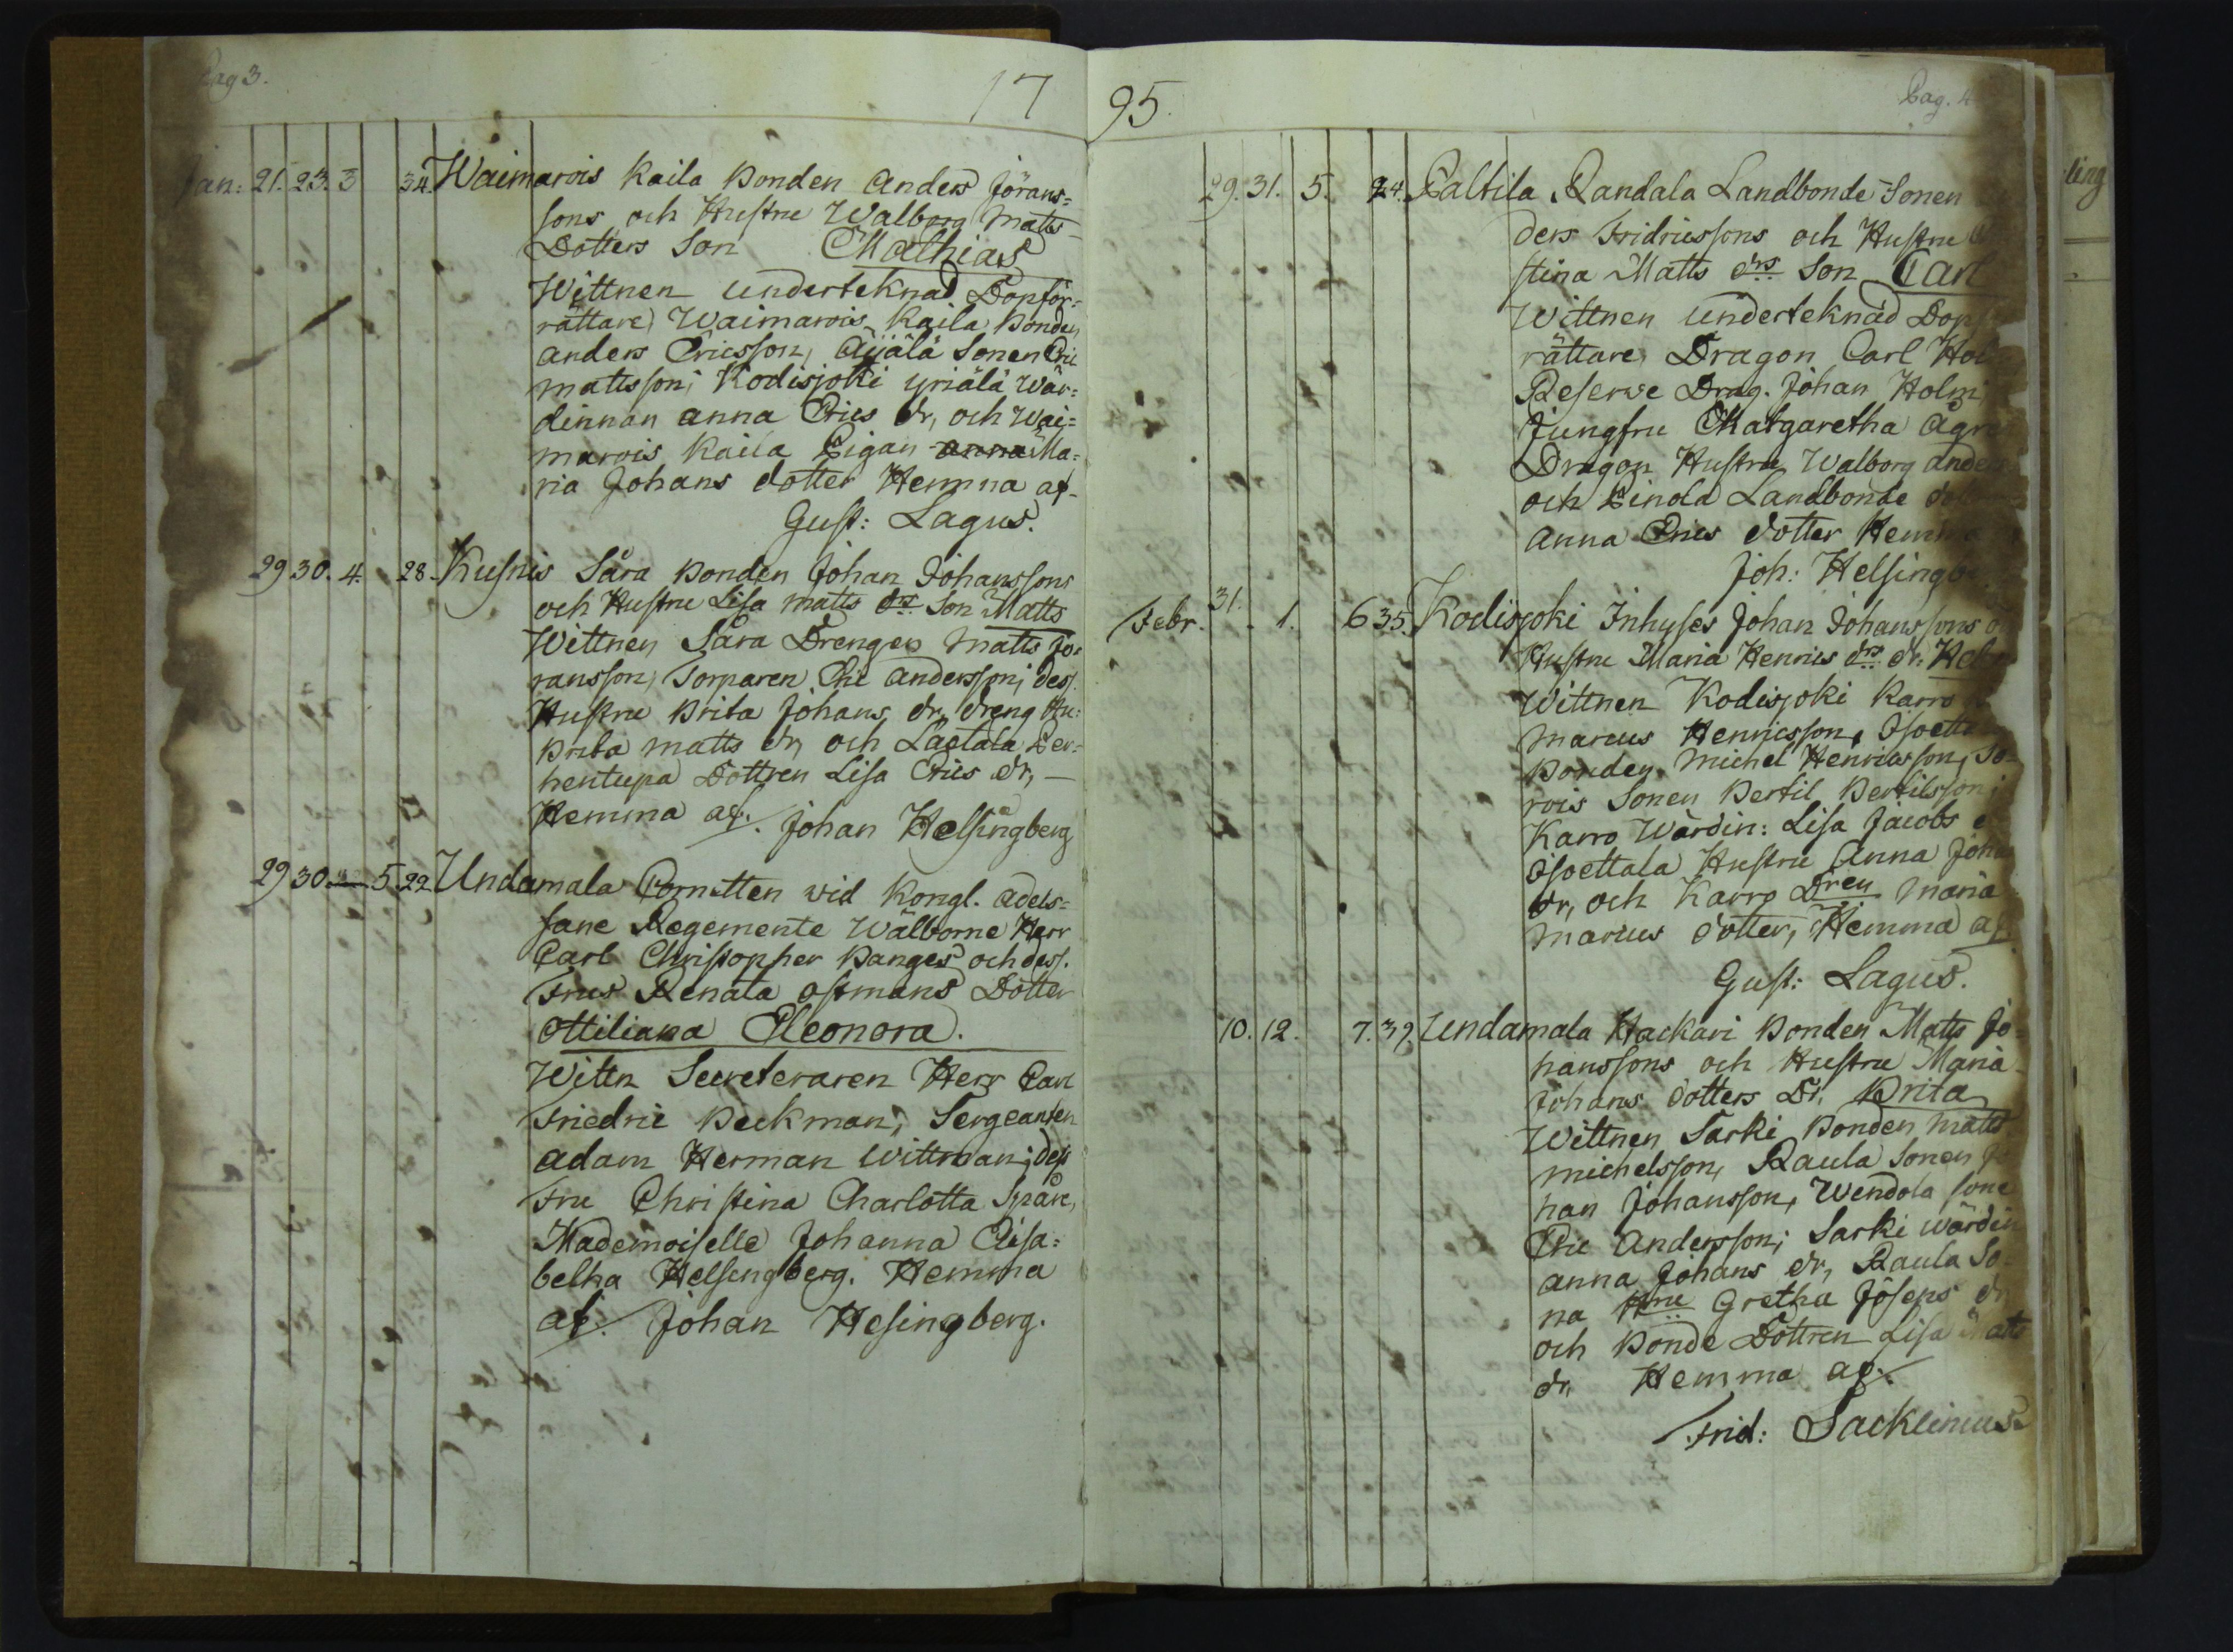 Pag 3.
17
Jan: 21. 23. 3 34. Waimarois Kaila Bonden Anders Jörans=
sons och Hustru Walborg Matts
Dotters Son Mathias
Wittnen underteknad Dopför=
rättare, Waimarois Kaila Bonden
Anders Ericsson, Äijälä Sonen Eric
Mattsson; Kodisjoki Yriälä Wär=
dinnan Anna Erics dr, och Wai=
marois Kaila Pigan Anna Ma=
ria Johans dotter Hemma af
Gust: Lagus.
29 30. 4. 28. Kusnis Sära Bonden Johan Johanssons
och Hustru Lisa Matts drs Son Matts
Wittnen Sära Drengen Matts Jö=
ransson, Torparen Eric Andersson; dess
Hustru Brita Johans dr, dreng Hu:
Brita Matts dr, och Laetala Per=
hentupa Dottren Lisa Erics dr, —
Hemma af. Johan Helsingberg
29 30. — 5. 22 Undamala Cornetten wid Kongl. Adels=
fane Regemente Wälborne Herr
Carl Christopher Banges och dess
Frus Renata Ostmans Dotter
Ottiliana Eleonora.
Wittn Secreteraren Herr Carl
Friedric Beckman, Sergeanten
Adam Herman Wittman; dess
Fru Christina Charlotta Spåre,
Mademoiselle Johanna Elisa=
betha Helsengberg. Hemma
af. Johan Hesingberg.
95.
Pag. 4
29. 31. 5. 24. Paltila Randala Landbonde Sonen
ders Fridricssons och Hustru
stina Matts drs Son Carl
Wittnen underteknad Dop
rättare, Dragon Carl Hol
Reserwe Drag. Johan Holm;
Jungfru Margaretha Agr
Dragon Hustru Walborg Anders
och Pinola Landbonde dot
Anna Erics dotter Hemma
Joh: Helsingb
Febr. 31. . 1. 6 35. Kodisjoki Inhyses Johan Johanssons o
Hustru Maria Henrics drs dr. Hel
Wittnen Kodisjoki Karro
Marcus Henricsson, Isoetta
Bonden Michel Henricsson, So=
rois Sonen Bertil Bertilsson;
Karro Wärdin: Lisa Jacobs
Isoettala Hustru Anna Joha
dr, och Karro Dren Maria
Marcus dotter, Hemma af
Gust: Lagus.
10. 12. 7. 39. Undamala Hackari Bonden Matts Jo=
hanssons och Hustru Maria
Johans dotters Dr. Brita
Wittnen Sarki Bonden Matts
Michelsson, Raula Sonen Jo
han Johansson, Wendola Sone
Eric Andersson; Sarki Wärdin
Anna Johans dr, Raula So=
na Hru Gretha Joseps dr
och Bonde Dottren Lisa Matts
dr, Hemma af.
Frid: Sacklinius
ling